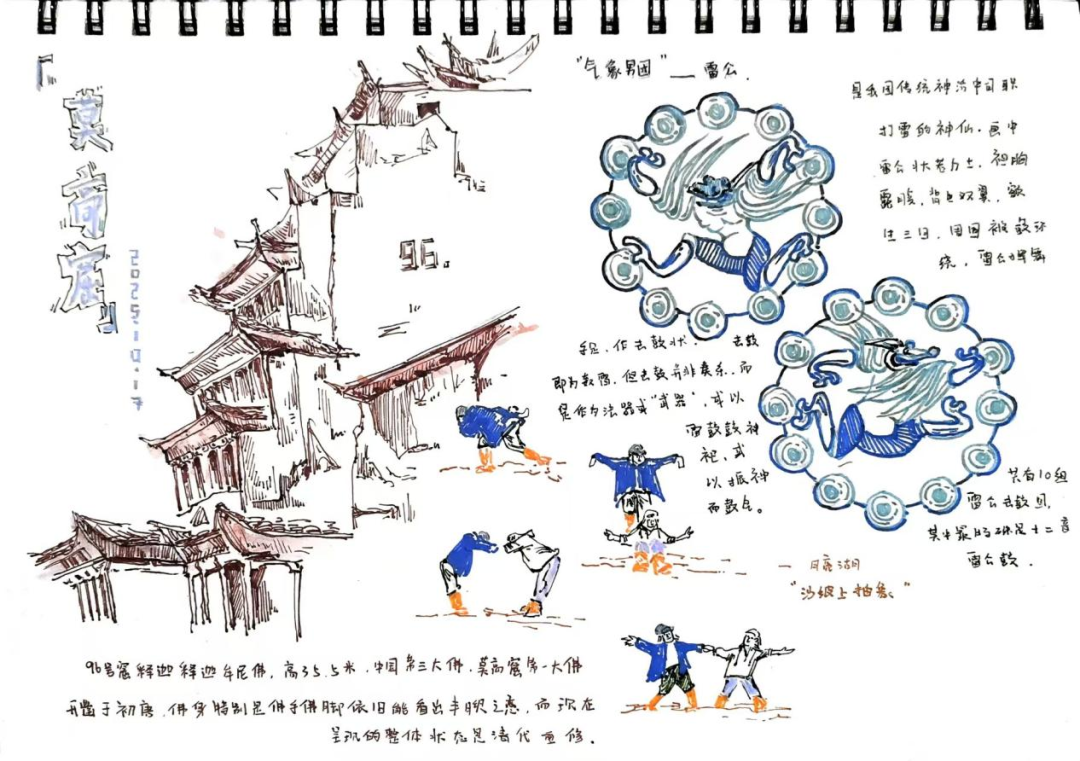 「莫高窟」
2025.10.17
96.
"气象男团" — 雷公.
是我国传统神话中司职
打雷的神仙.画中
雷公状若力士.袒胸
露腹,背生双翼,
生三目,周围被鼓环
绕,雷公挥舞
手足,作击鼓状. 击鼓
即为鼓,但击鼓并非奏乐.而
是作为法器或"武器",或以
而鼓鼓神
祀,或
以振神
而鼓舞。
共有10组
雷公击鼓图,
其中最 是十二音
雷公鼓.
— 月亮湖
"沙坡上拍象."
96号窟释迦释迦牟尼佛,高35.5米,中国第三大佛.莫高窟第一大佛
开凿于初唐.佛身特别是佛手佛脚依旧能看出丰腴之态,而现在
呈现的整体状态是清代重修.